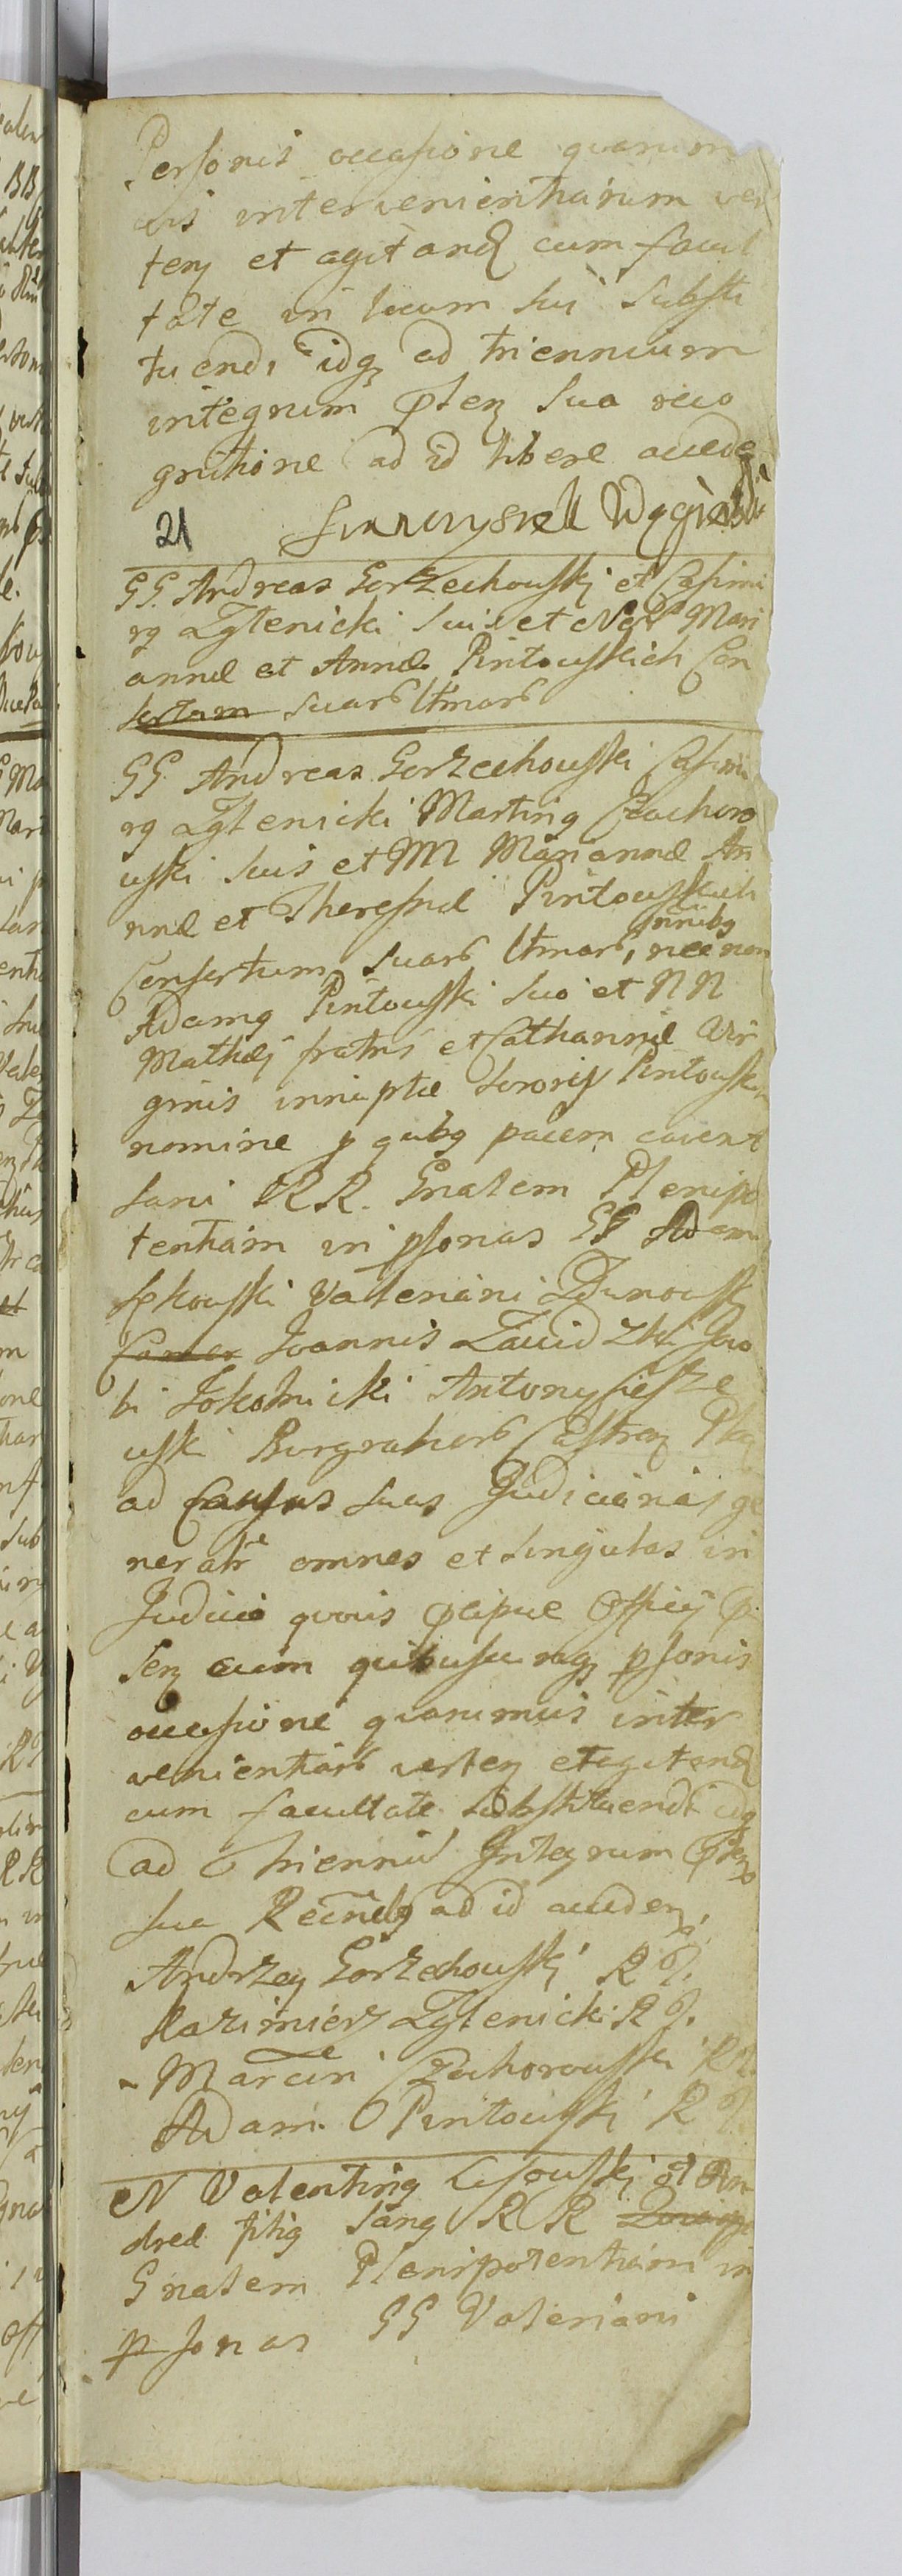 Personis occasione quarum
vis intervenientiarum ver
ten et agitand cum facul
tate in locum sui substi
tuendi idq ad triennium
integrum pten sua reco
gnitione ad id libere acceden
21
GG. Andreas Gorzechouski et Casimi
rg Zgtenicki suis et Mari
annæ et Annæ Pintouskich Con
sortum suarũ ltmarũ
GG. Andreas Gorzechouski Casimi
rg Zgtenicki Marting Czachoro
uski suis et M M Mariannæ An
næ et Theressæ Pintouskich
Consortum suarũ ltmarũ, nnibg nec non
Adamg Pintouski suo et N N
Mathæj fratris et Catharinæ Vir
ginis innuptæ sororis Pintousk
nomine p qubg pacem cavent
sani R R. Gnalem Plenipo
tentiam in psonas GG Adam
Valeriani Zdunousk
Joannis Zawidzki Jaco
bi Sokolnicki Antony Ciesze
uski Burgrabiorũ Castren
ad Causas suas Judiciarias ge
neralr omnes et singulas in
Judicio quovis pcipue Officij p
sen cum quibuscunq psonis
occasione quarumvis inter
venientiarũ verten et agitand
cum facultate substituendi idq
ad trienniũ Integrum pten
sua Recnibg ad id acceden
Andrzey Gorzechouski R
Kazimierz Zgtenicki R
Marcin Czachorouski R
Adam Pintouski R
N Valenting Lisouski ol An
dreæ filig sang R R
Gnalem Plenipotentiam in
psonas GG Valeriani